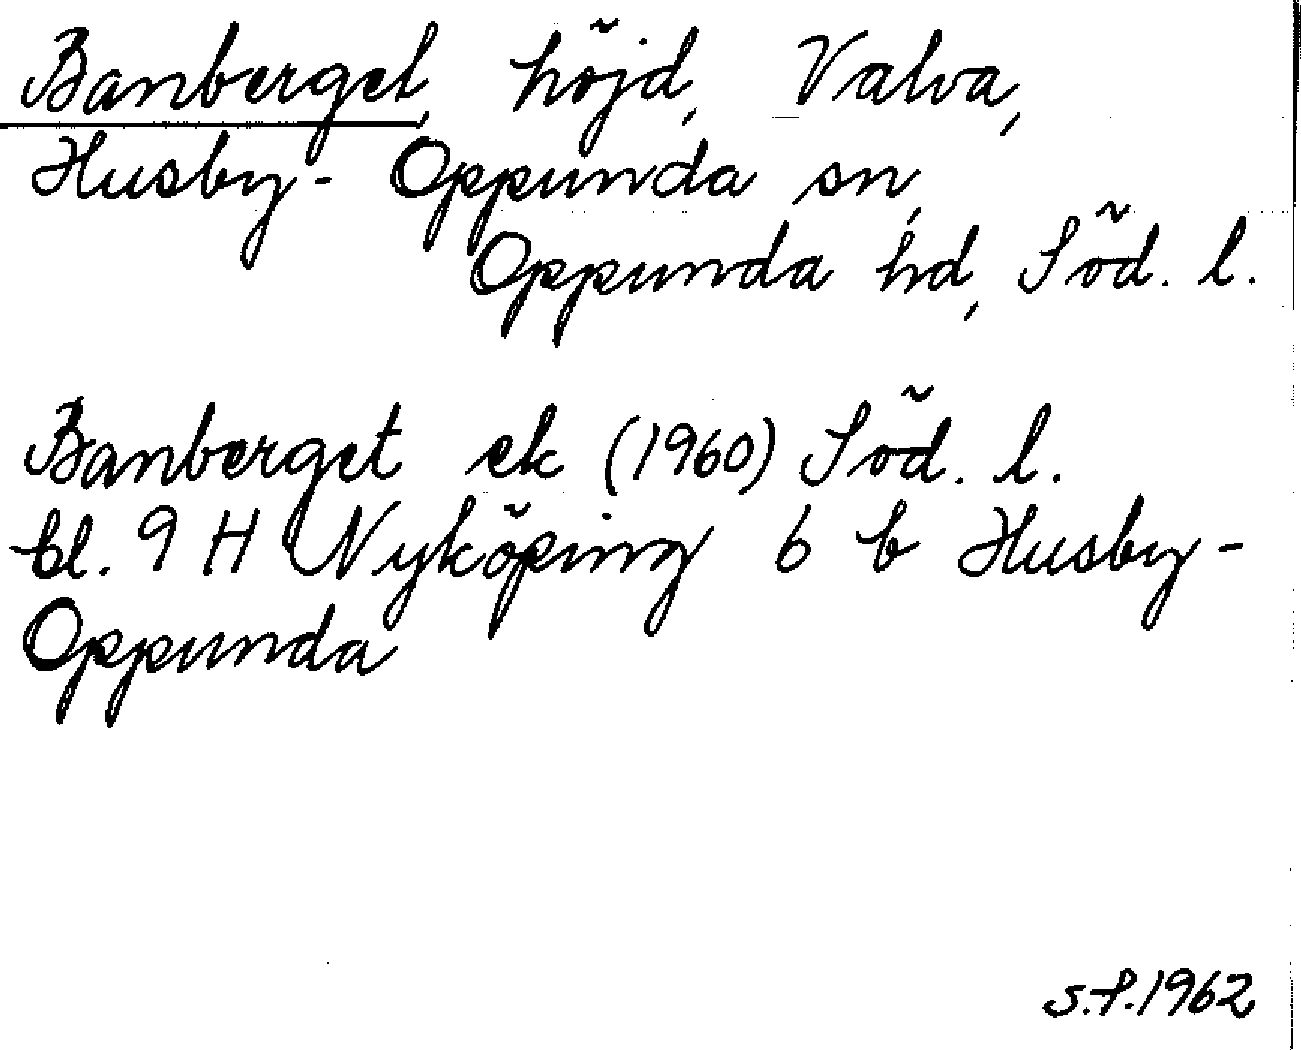 Banberget, höjd, Valva,
Husby- Oppunda sn,
Oppunda hd, Söd. l.
Banberget ek (1960) Söd. l.
bl. 9 H Nyköping 6 b Husby-
Oppunda
s.f.1962